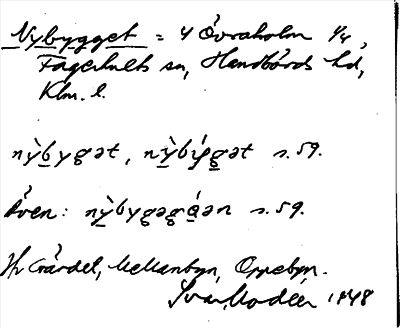 Nybygget = 4 Övraholm 1/4,
Fagerhults sn, Handbörds hd,
Klm. l.
nỳbygət, nỳbýgət s. 59.
Även: nỳbygəgådən s. 59.
Hv Gårdet, Mellanbyn, Oppebyn.
Ivar Modéer 1948